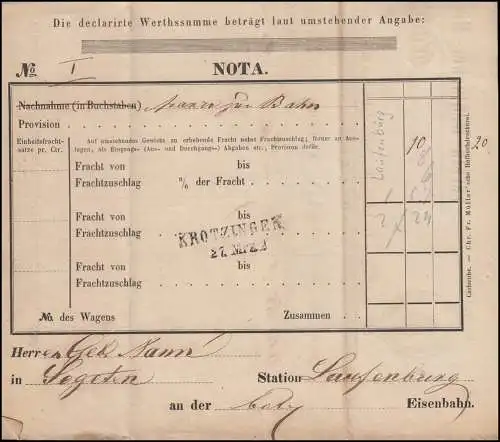 Die declarirte Werthssumme beträgt laut umstehender Angabe:
No. 1 NOTA.
Nachnahme (in Buchstaben)
Provision
Einheitsfracht-
sätze pr. Ctr.
Auf umstehendes Gewicht zu erhebende Fracht nebst Frachtzuschlag; ferner an Aus-
lagen, als Eingangs- (Aus- und Durchgangs-) Abgaben etc., Provision dafür.
Laufenburg
10 20
Fracht von bis
Frachtzuschlag % der Fracht
2 24
Fracht von bis
Frachtzuschlag
KROTZINGEN
27. Mrz.
Fracht von bis
Frachtzuschlag
No. des Wagens Zusammen
Carlsruhe. — Chr. Fr. Müller'sche Hofbuchdruckerei.
Herren Geb.
in Station Laufenburg
an der Eisenbahn.